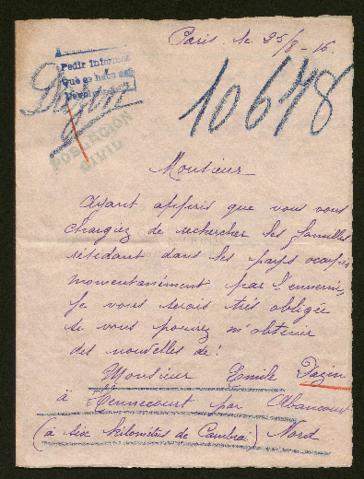 Paris le 25/8-16.
Pedir informes
Dazin
10648
POBLACIÓN
CIVIL
Monsieur-
Ayant appris que vous vous
chargiez de rechercher les familles
résidant dans les pays occupés
momentanément par l'ennemi,
je vous serais très obligée
si vous pouvez m'obtenir
des nouvelles de:
Monsieur Emile Dazin
à Hennecourt par Abancourt
(à six kilomètres de Cambrai) Nord